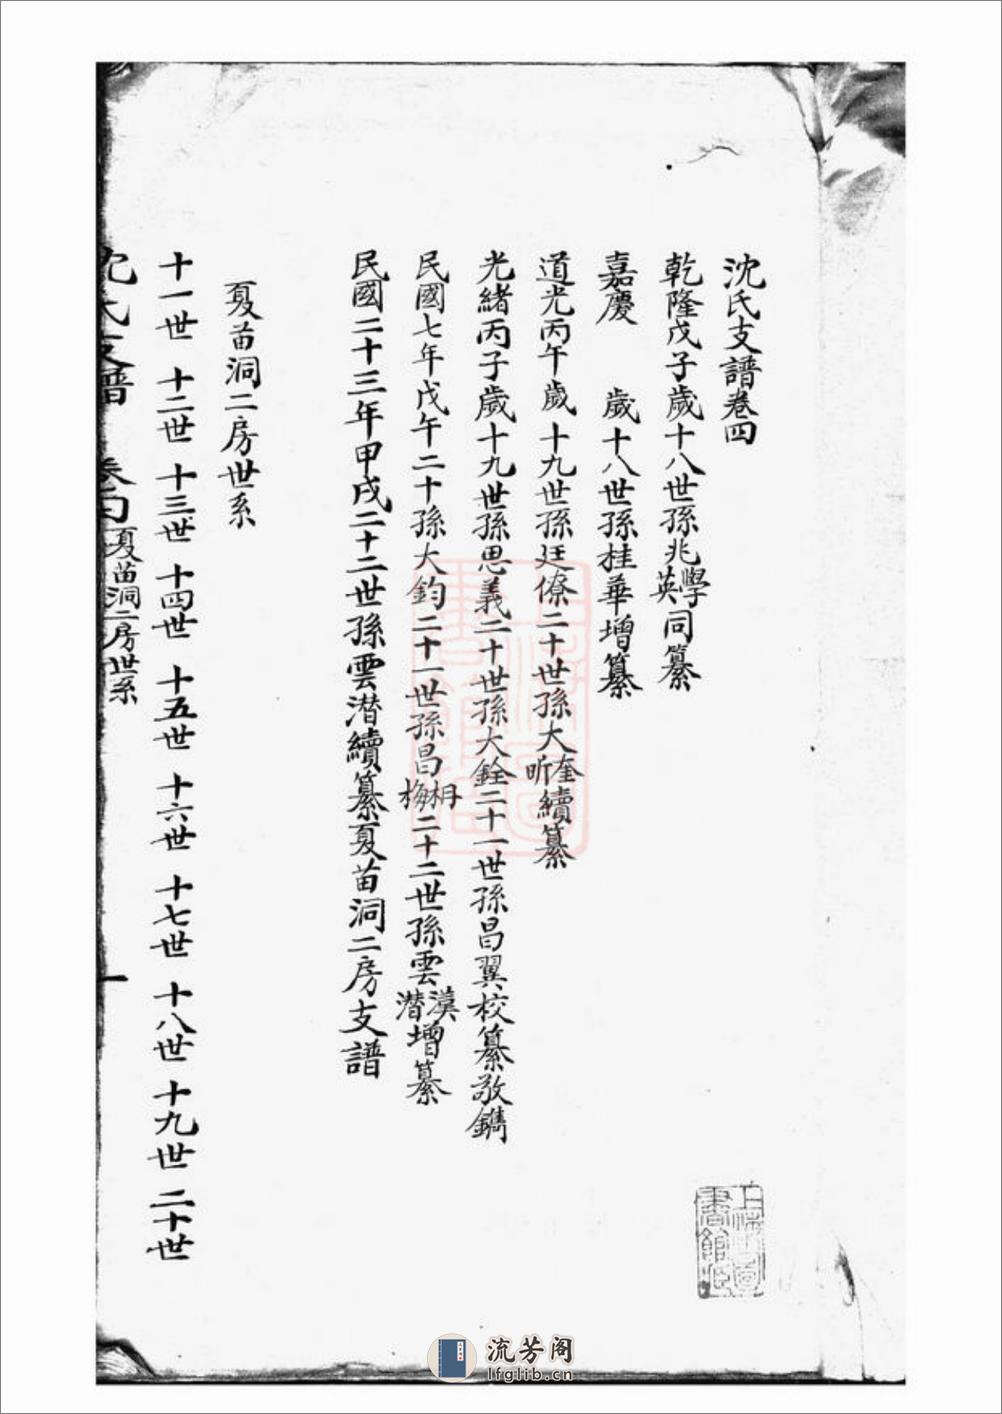 沈氏支譜卷四
乾隆戊子歲十八世孫兆學英同纂
嘉慶　　歲十八世孫桂華增纂
道光丙午歲十九世孫廷僚二十世孫大奎昕續纂
光緒丙子歲十九世孫思義二十世孫大銓二十一世孫昌翼校纂敬鐫
民國七年戊午二十孫大鈞二十一世孫昌梅二十二世孫雲漢潛增纂
民國二十三年甲戌二十二世孫雲潛續纂夏苗洞二房支譜
夏苗洞二房世系
十一世 十二世 十三世 十四世 十五世 十六世 十七世 十八世 十九世 二十世
沈氏支譜 卷四 夏苗洞二房世系 一
上海圖書館藏
流芳阁
lfglib.cn